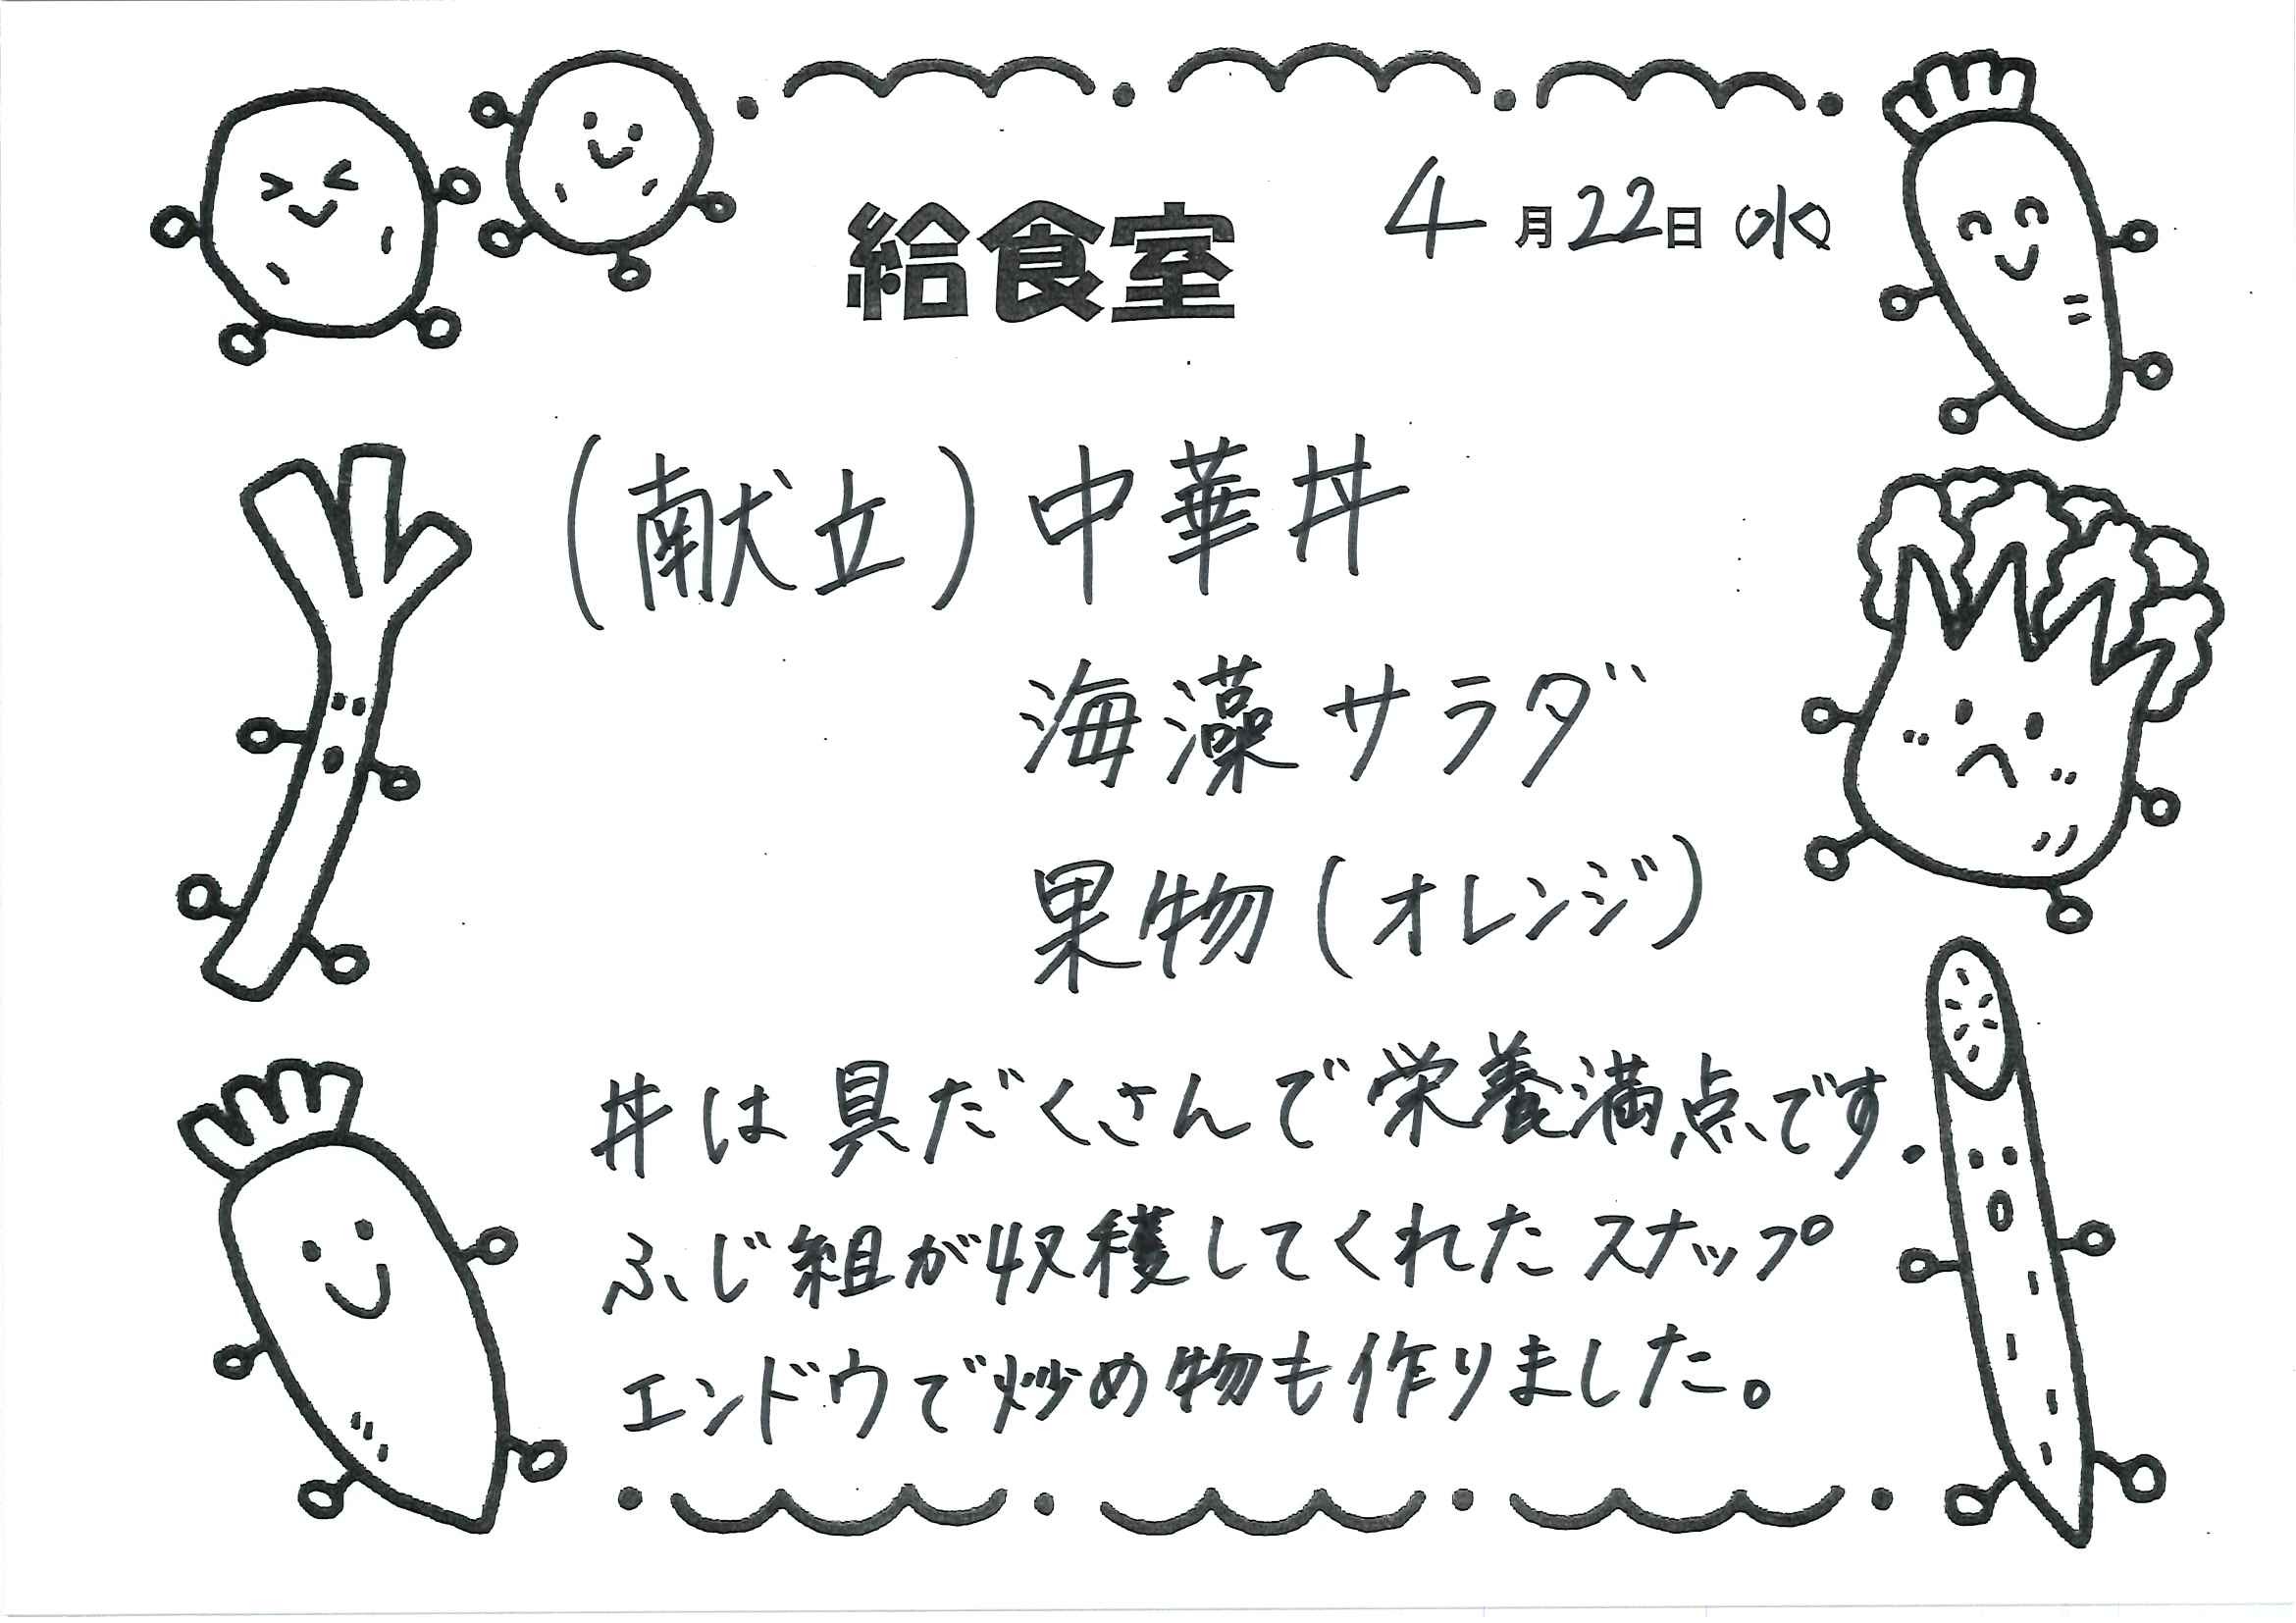 給食室
4月22日(水)
(献立)中華丼
海藻サラダ
果物(オレンジ)
丼は具だくさんで栄養満点です.
ふじ組が収穫してくれたスナップ
エンドウで炒め物も作りました。